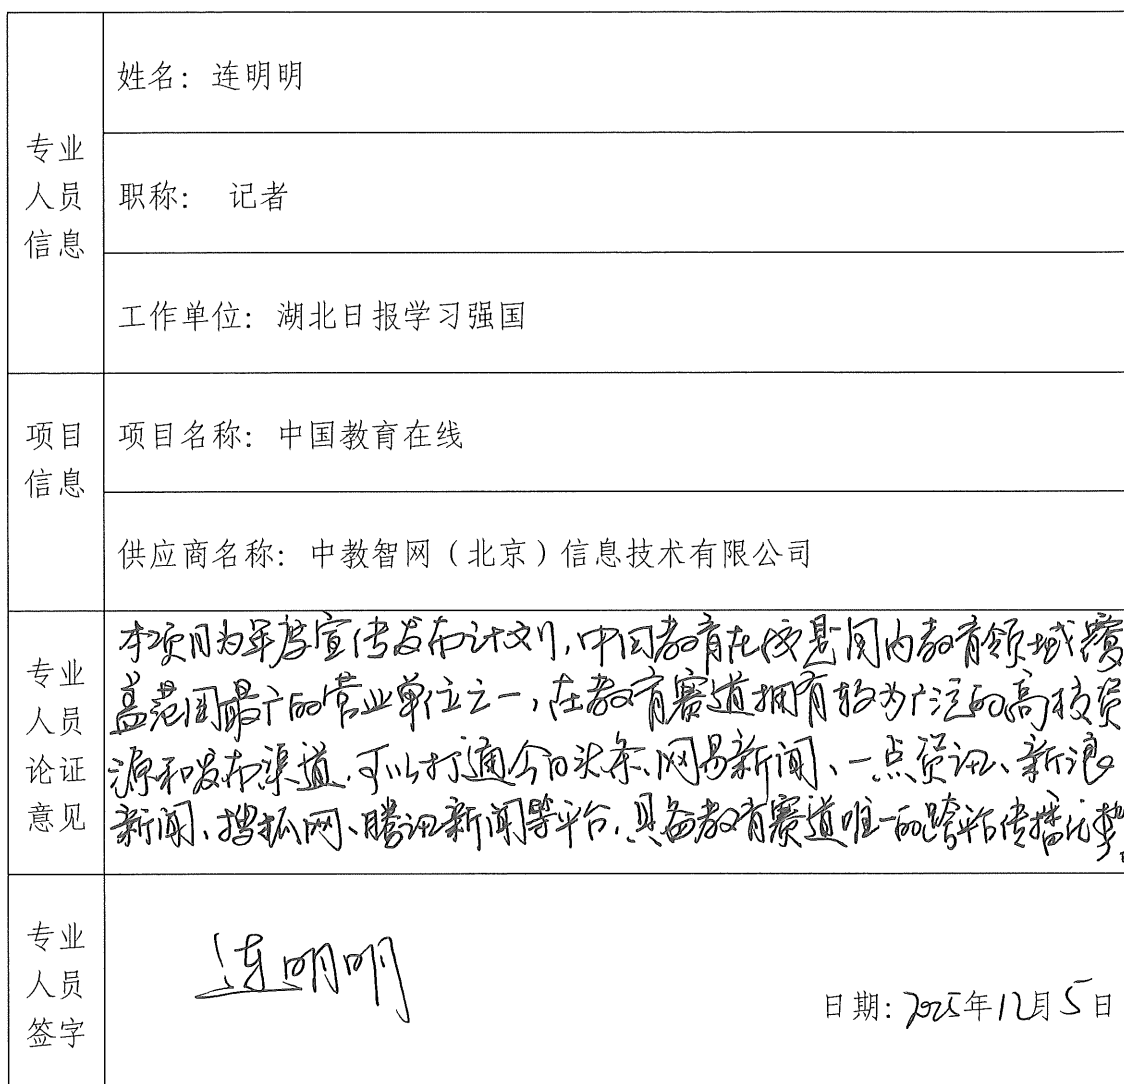 专业
人员
信息
姓名：连明明
职称： 记者
工作单位：湖北日报学习强国
项目
信息
项目名称：中国教育在线
供应商名称：中教智网（北京）信息技术有限公司
专业
人员
论证
意见
本项目为年度宣传发布计划，中国教育在线是国内教育领域覆
盖范围最广的营业单位之一，在教育赛道拥有较为广泛的高校资
源和发布渠道，可以打通今日头条、网易新闻、一点资讯、新浪
新闻、搜狐网、腾讯新闻等平台，具备教育赛道唯一的跨平台传播优势。
专业
人员
签字
连明明
日期：2025年12月5日